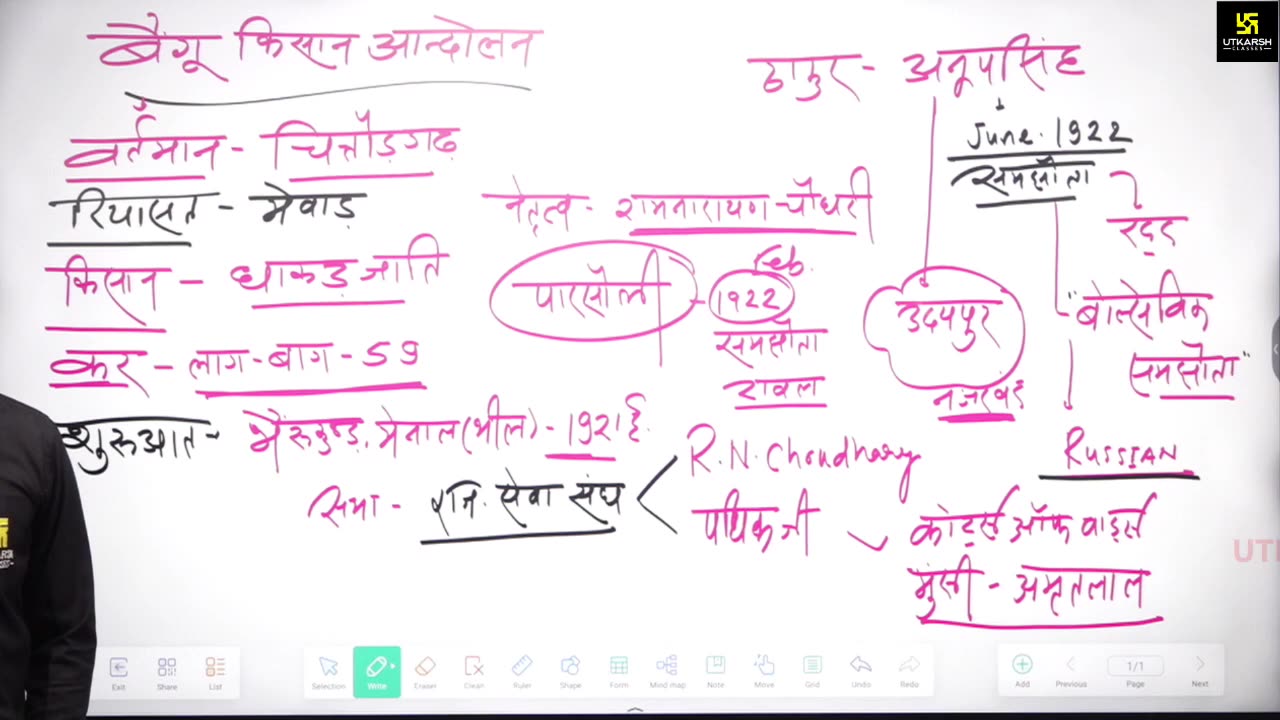 बैंगू किसान आन्दोलन
वर्तमान - चित्तौड़गढ़
रियासत - मेवाड़
किसान - धाकड़ जाति
कर - लाग-बाग - 59
शुरुआत - भैरुकुण्ड, मेनाल (भील) - 1921 ई.
सभा - राज. सेवा संघ
R.N. Choudhary
पथिक जी
नेतृत्व - रामनारायण चौधरी
पारसौली - 1922 Feb.
समझौता
रावल
ठाकुर - अनूपसिंह
June. 1922
समझौता
रद्द
उदयपुर
नजरबंद
"बोल्सेविक
समझौता"
RUSSIAN
कोर्ट्स ऑफ वार्ड्स
मुंसी - अमृतलाल
UTKARSH
CLASSES
UTK
Exit
Share
List
Selection
Write
Eraser
Clean
Ruler
Shape
Form
Mind map
Note
Move
Grid
Undo
Redo
Add
Previous
1/1
Page
Next